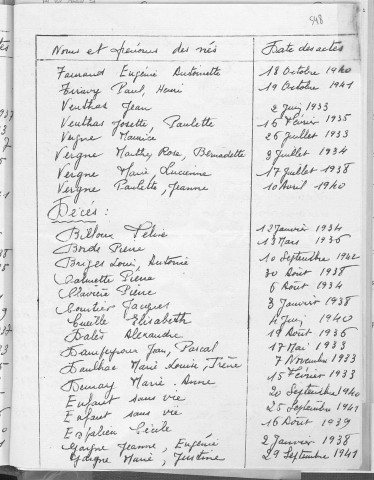 548
Noms et prénoms des nés Date des actes
Farnaud Eugénie Antoinette 18 Octobre 1940
Paul, Henri 19 Octobre 1941
Venthas Jean 2 Juin 1933
Venthas Josette, Paulette 16 Février 1935
Vergne Maurice 26 Juillet 1933
Vergne Marthe, Rose, Bernadette 3 Juillet 1934
Vergne Marie Lucienne 17 Juillet 1938
Vergne Paulette, Jeanne 10 Avril 1940
Décés :
Billoux Félix 12 Janvier 1934
Borde Pierre 13 Mars 1936
Briges Louis, Antoine 10 Septembre 1942
Calmette Pierre 30 Août 1938
Clavière Pierre 6 Août 1934
Jacques 3 Janvier 1938
Cueille Elisabeth 4 Juin 1940
Dalès Alexandre 19 Août 1936
Jean, Pascal 17 Mai 1933
Marie Louise, Irène 7 Novembre 1933
Marie-Anne 15 Février 1933
Enfant sans vie 20 Septembre 1940
Enfant sans vie 25 Septembre 1941
Cécile 16 Août 1939
Gorgne Jeanne, Eugénie 2 Janvier 1938
Gorgne Marie, Justine 29 Septembre 1941